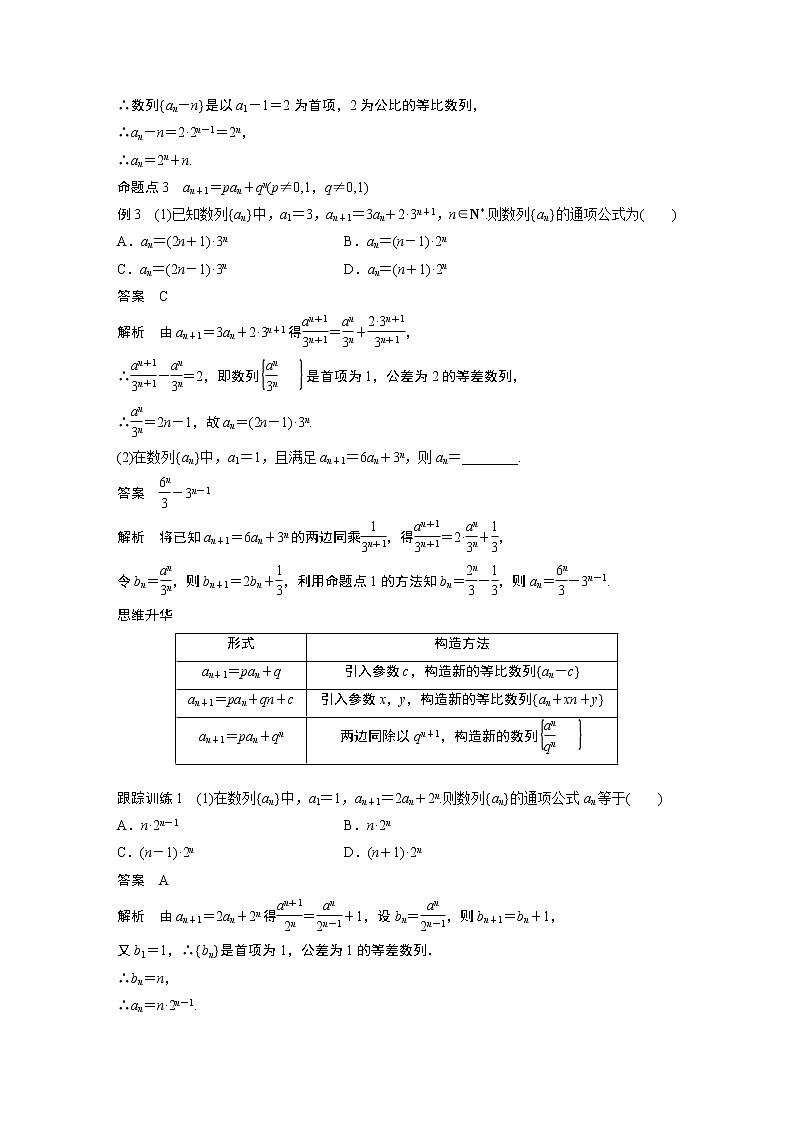 ∴数列{aₙ－n}是以 a₁－1＝2 为首项，2 为公比的等比数列，
∴aₙ－n＝2·2ⁿ⁻¹＝2ⁿ，
∴aₙ＝2ⁿ＋n.
命题点 3　aₙ₊₁＝paₙ＋qⁿ(p≠0,1，q≠0,1)
例 3　(1)已知数列{aₙ}中，a₁＝3，aₙ₊₁＝3aₙ＋2·3ⁿ⁺¹，n∈N*.则数列{aₙ}的通项公式为(　　)
A．aₙ＝(2n＋1)·3ⁿ　B．aₙ＝(n－1)·2ⁿ
C．aₙ＝(2n－1)·3ⁿ　D．aₙ＝(n＋1)·2ⁿ
答案　C
解析　由 aₙ₊₁＝3aₙ＋2·3ⁿ⁺¹ 得 aⁿ⁺¹/3ⁿ⁺¹＝aⁿ/3ⁿ＋2·3ⁿ⁺¹/3ⁿ⁺¹，
∴aⁿ⁺¹/3ⁿ⁺¹－aⁿ/3ⁿ＝2，即数列{aⁿ/3ⁿ}是首项为 1，公差为 2 的等差数列，
∴aⁿ/3ⁿ＝2n－1，故 aₙ＝(2n－1)·3ⁿ.
(2)在数列{aₙ}中，a₁＝1，且满足 aₙ₊₁＝6aₙ＋3ⁿ，则 aₙ＝________.
答案　6ⁿ/3－3ⁿ⁻¹
解析　将已知 aₙ₊₁＝6aₙ＋3ⁿ 的两边同乘 1/3ⁿ⁺¹，得 aⁿ⁺¹/3ⁿ⁺¹＝2·aⁿ/3ⁿ＋1/3，
令 bₙ＝aⁿ/3ⁿ，则 bₙ₊₁＝2bₙ＋1/3，利用命题点 1 的方法知 bₙ＝2ⁿ/3－1/3，则 aₙ＝6ⁿ/3－3ⁿ⁻¹.
思维升华
形式　构造方法
aₙ₊₁＝paₙ＋q　引入参数 c，构造新的等比数列{aₙ－c}
aₙ₊₁＝paₙ＋qn＋c　引入参数 x，y，构造新的等比数列{aₙ＋xn＋y}
aₙ₊₁＝paₙ＋qⁿ　两边同除以 qⁿ⁺¹，构造新的数列{aⁿ/qⁿ}
跟踪训练 1　(1)在数列{aₙ}中，a₁＝1，aₙ₊₁＝2aₙ＋2ⁿ.则数列{aₙ}的通项公式 aₙ 等于(　　)
A．n·2ⁿ⁻¹　B．n·2ⁿ
C．(n－1)·2ⁿ　D．(n＋1)·2ⁿ
答案　A
解析　由 aₙ₊₁＝2aₙ＋2ⁿ 得 aⁿ⁺¹/2ⁿ＝aⁿ/2ⁿ⁻¹＋1，设 bₙ＝aⁿ/2ⁿ⁻¹，则 bₙ₊₁＝bₙ＋1，
又 b₁＝1，∴{bₙ}是首项为 1，公差为 1 的等差数列．
∴bₙ＝n，
∴aₙ＝n·2ⁿ⁻¹.